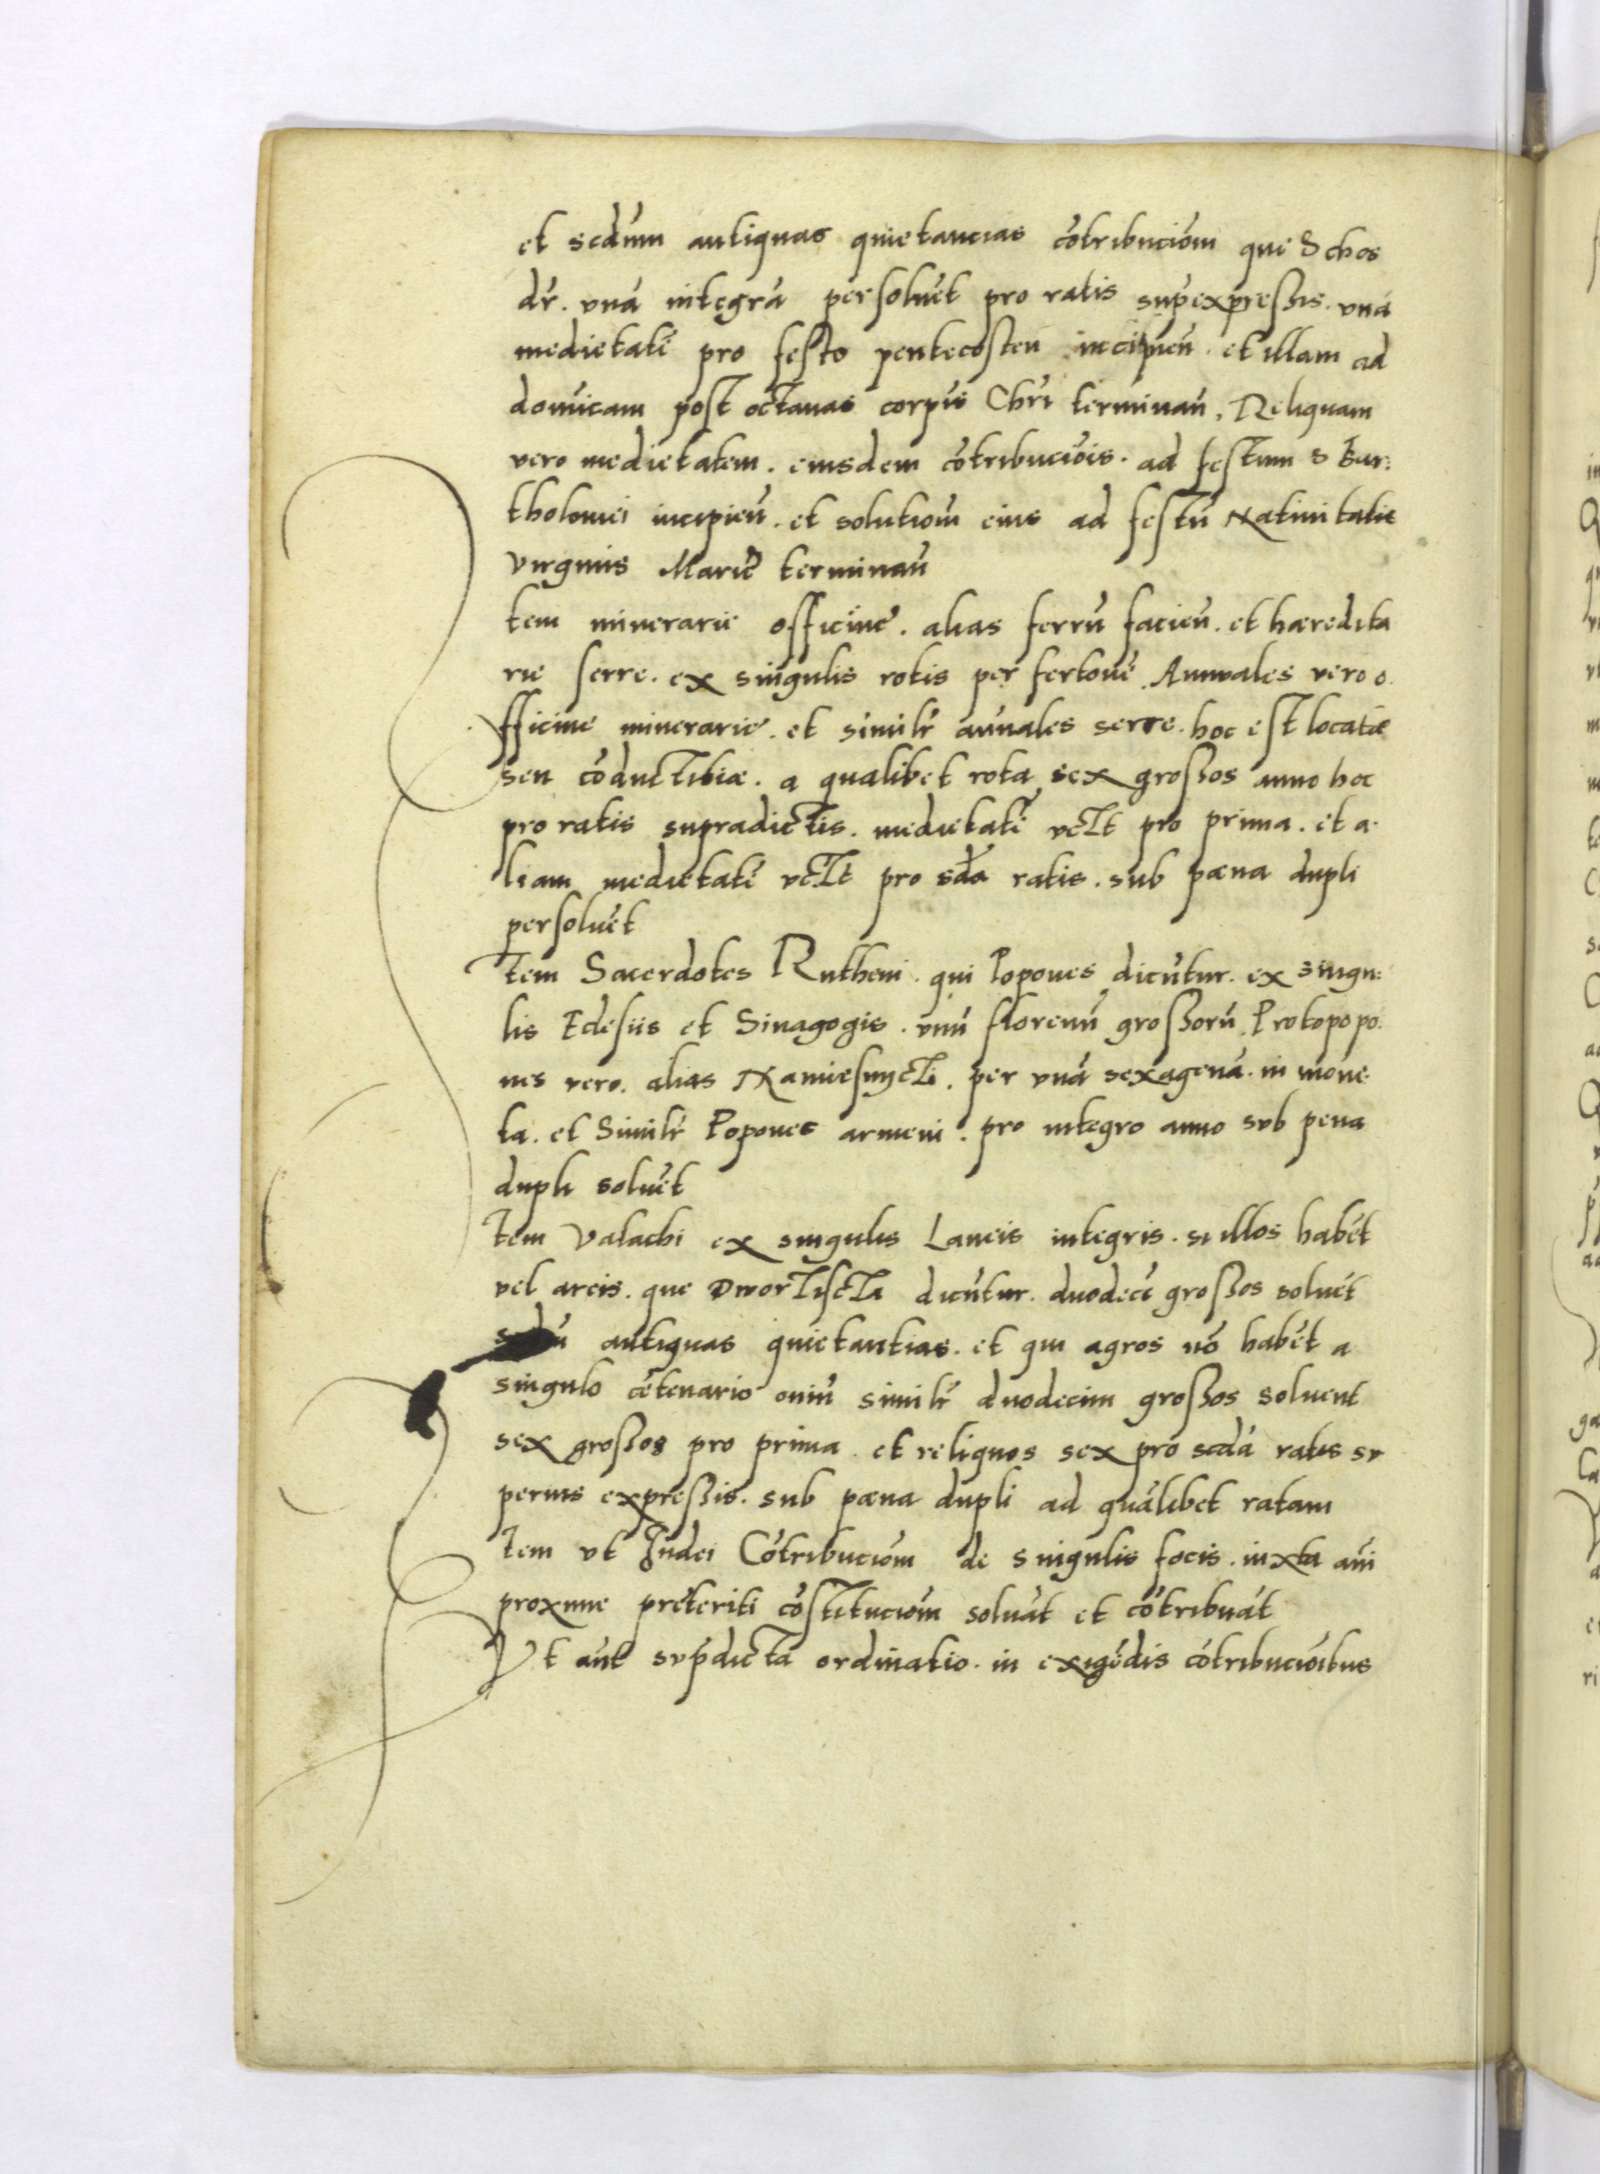 et scdum antiquas quietancias cõtribuciõm que Schos
dr. vnã integrã persoluẽt pro ratis supexpressis. vnã
medietatẽ pro festo pentecosten incipieñ. et illam ad
domĩcam post octauas corpis Chri terminañ. Reliquam
vero medietatem. eiusdem cõtribuciõis. ad festum S Bar:
tholomei incipieñ. et solutiõm eius ad festũ Natiuitatis
virginis Marie terminañ
tem minerarie officine. alias ferrũ facieñ. et hæredita
rie serre. ex singulis rotis per fertonẽ. Annuales vero o.
fficine minerarie. et similr añuales serre. hoc est locatæ
seu cõductibiæ. a qualibet rota sex grossos anno hoc
pro ratis supradictis. medietatẽ vclt pro prima. et a
liam medietatẽ vclt pro scda ratis. sub pæna dupli
persoluẽt
Item Sacerdotes Rutheni. qui Popones dicũtur. ex singu:
lis Eclesiis et Sinagogis. vnũ florenũ grossorũ. Protopopo
nes vero. alias Namiesnycli. per vnã sexagenã. in mone
ta. et Similr Popones armeni. pro integro anno sub pena
dupli soluẽt
Item Valachi ex singulis Laneis integris. si illos habẽt
vel areis. que Dworzisczia dicũtur. duodecĩ grossos soluẽt
antiquas quietantias. et qui agros nõ habẽt a
singulo cẽtenario ouiũ similr duodecim grossos soluent
sex grossos pro prima. et reliquos sex pro scdã ratis su
perius expressis. sub pæna dupli ad quãlibet ratam
Item vt Iudei Cõtribuciõm de singulis focis. iuxta añi
proxime prẽteriti cõstituciõm soluãt et cõtribuãt
Vt aũt supdicta ordinatio. in exigẽdis cõtribuciõibus